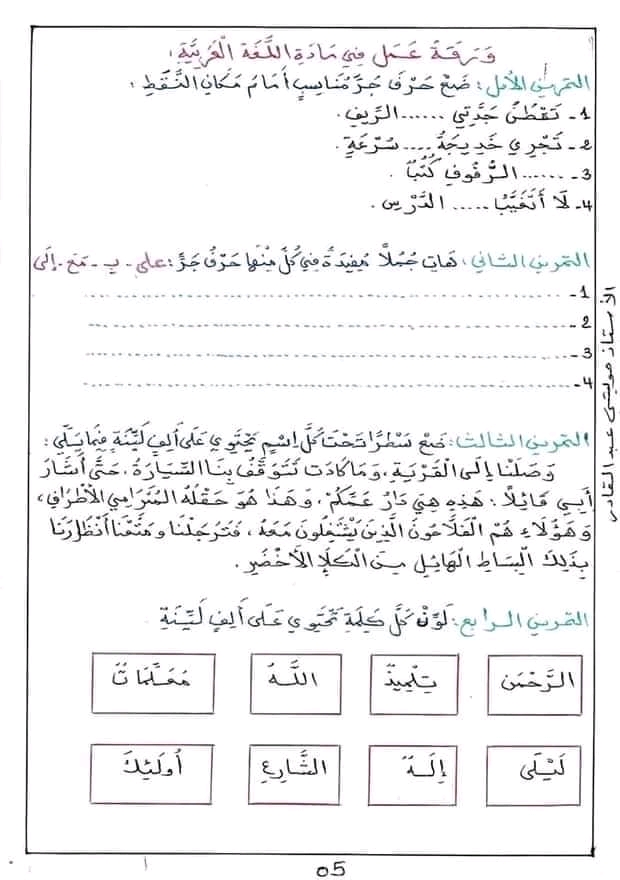 وَرَقَةُ عَمَلٍ فِي مَادَةِ اللُّغَةِ الْعَرَبِيَّةِ:
التمرين الأول: ضَعْ حَرْفَ جَرٍّ مُنَاسِبٍ أَمَامَ مَكَانِ النُّقَطِ:
1- تَقْطُنُ جَدَّتِي ...... الرِّيفِ.
2- تَجْرِي خَدِيجَةُ .... سُرْعَةٍ.
3- ...... الرُّفُوفِ كُتُبٌ.
4- لَا أَتَغَيَّبُ ..... الدَّرْسِ.
التمرين الثاني: هَاتِ جُمَلًا مُفِيدَةً فِي كُلٍّ مِنْهَا حَرْفُ جَرٍّ: على - بِ - مَعَ - إلَى
1- ......................................
2- ......................................
3- ......................................
4- ......................................
التمرين الثالث: ضَعْ سَطْرًا تَحْتَ كُلِّ اِسْمٍ يَحْتَوِي عَلَى أَلِفٍ لَيِّنَةٍ فِيمَا يَلِي:
وَصَلْنَا إِلَى الْقَرْيَةِ، وَمَا كَادَتْ تَتَوَقَّفُ بِنَا السَّيَّارَةُ، حَتَّى أَشَارَ
أَبِي قَائِلًا: هَذِهِ هِيَ دَارُ عَمِّكُمْ، وَهَذَا هُوَ حَقْلُهُ الْمُتَرَامِي الْأَطْرَافِ،
وَهَؤُلَاءِ هُمُ الْفَلَّاحُونَ الَّذِينَ يَشْتَغِلُونَ مَعَهُ، فَتَرَجَّلْنَا وَمَتَّعْنَا أَنْظَارَنَا
بِذَلِكَ الْبِسَاطِ الْهَائِلِ مِنَ الْكَلَإِ الْأَخْضَرِ.
التمرين الرابع: لَوِّنْ كُلَّ كَلِمَةٍ تَحْتَوِي عَلَى أَلِفٍ لَيِّنَةٍ.
الرَّحْمَن تِلْمِيذٌ اللَّهُ مُعَلِّمَاتٌ
لَيْلَى إِلَهٌ الشَّارِعِ أُولَئِكَ
الأستاذ عبد القادر
05